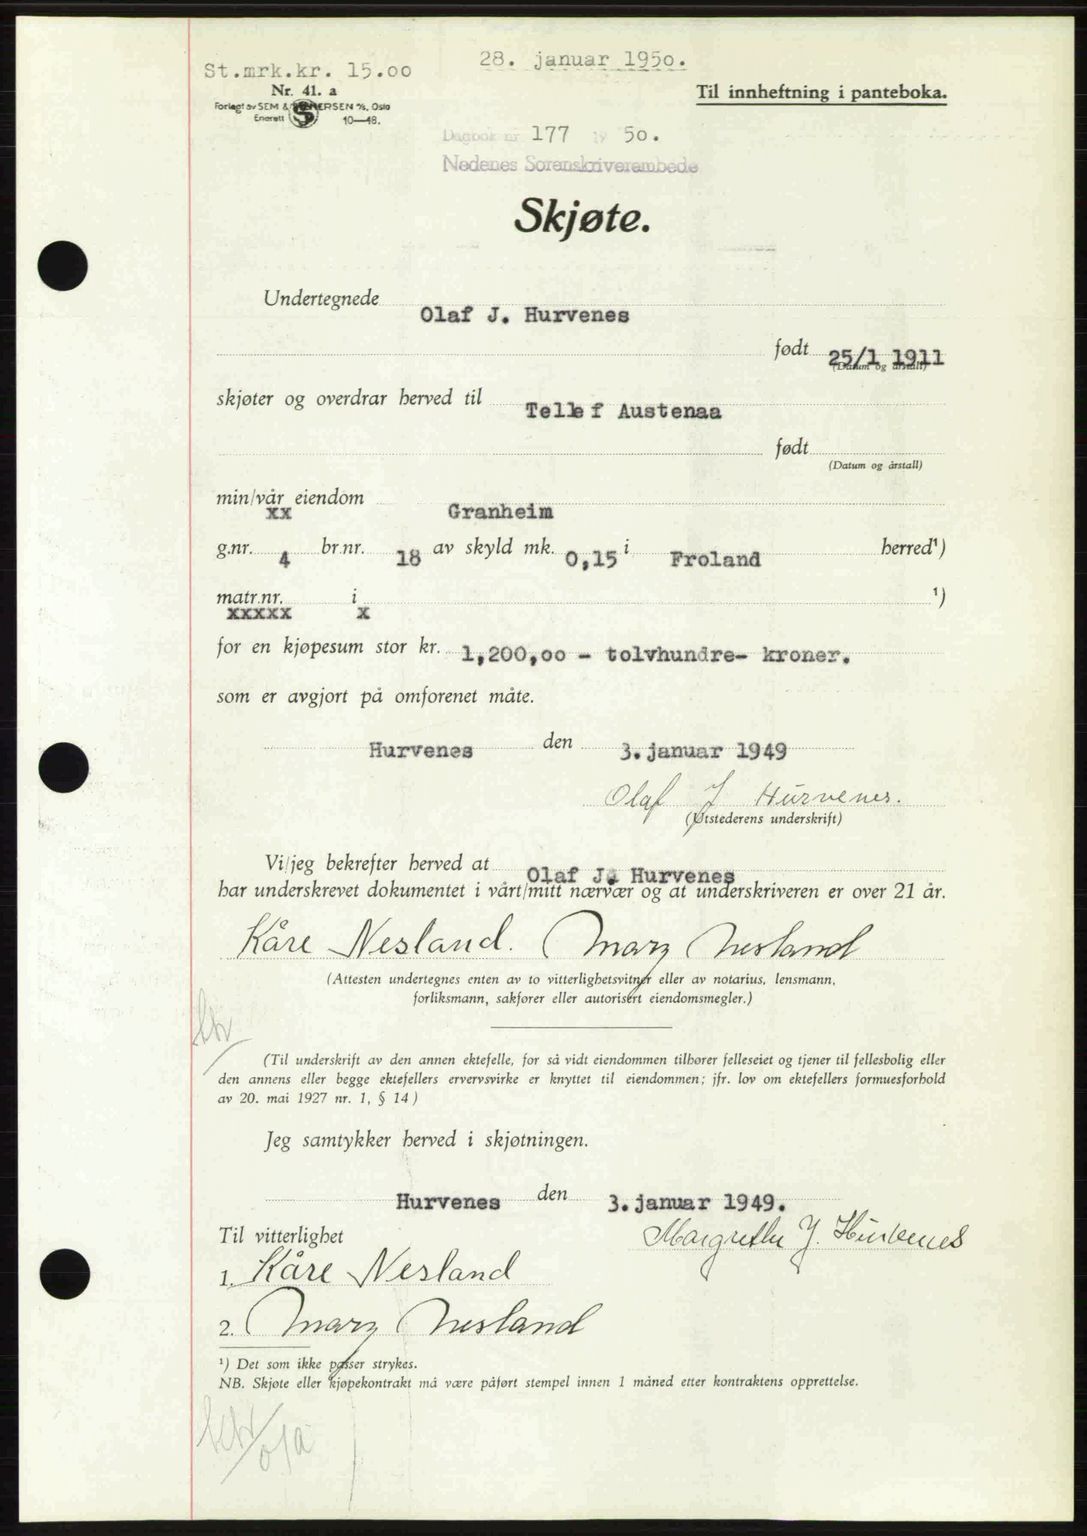 St.mrk.kr. 15.00
28. januar 1950.
Nr. 41. a
Til innheftning i panteboka.
Forlagt av SEM & STENERSEN A/S, Oslo
Enerett 10—48.
Dagbok nr 177 19 50.
Nedenes Sorenskriverembede
Skjøte.
Undertegnede Olaf J. Hurvenes
født 25/1 1911
(Datum og årstall)
skjøter og overdrar herved til Tellef Austenaa
født
(Datum og årstall)
min/vår eiendom Granheim
xx
g.nr. 4 br.nr. 18 av skyld mk. 0,15 i Froland herred¹)
matr.nr. i ¹)
xxxxx x
for en kjøpesum stor kr. 1,200,oo - tolvhundre- kroner.
som er avgjort på omforenet måte.
Hurvenes den 3.januar 1949
Olaf J Hurvenes.
(Utstederens underskrift)
Vi/jeg bekrefter herved at Olaf J. Hurvenes
har underskrevet dokumentet i vårt/mitt nærvær og at underskriveren er over 21 år.
Kåre Nesland. Mary Nesland
(Attesten undertegnes enten av to vitterlighetsvitner eller av notarius, lensmann,
forliksmann, sakfører eller autorisert eiendomsmegler.)
(Til underskrift av den annen ektefelle, for så vidt eiendommen tilhører felleseiet og tjener til fellesbolig eller
den annens eller begge ektefellers ervervsvirke er knyttet til eiendommen; jfr. lov om ektefellers formuesforhold
av 20. mai 1927 nr. 1, § 14)
Jeg samtykker herved i skjøtningen.
Hurvenes den 3.januar 1949.
Til vitterlighet
Margrethe J. Hurvenes
1. Kåre Nesland
2. Mary Nesland
¹) Det som ikke passer strykes.
NB. Skjøte eller kjøpekontrakt må være påført stempel innen 1 måned etter kontraktens opprettelse.